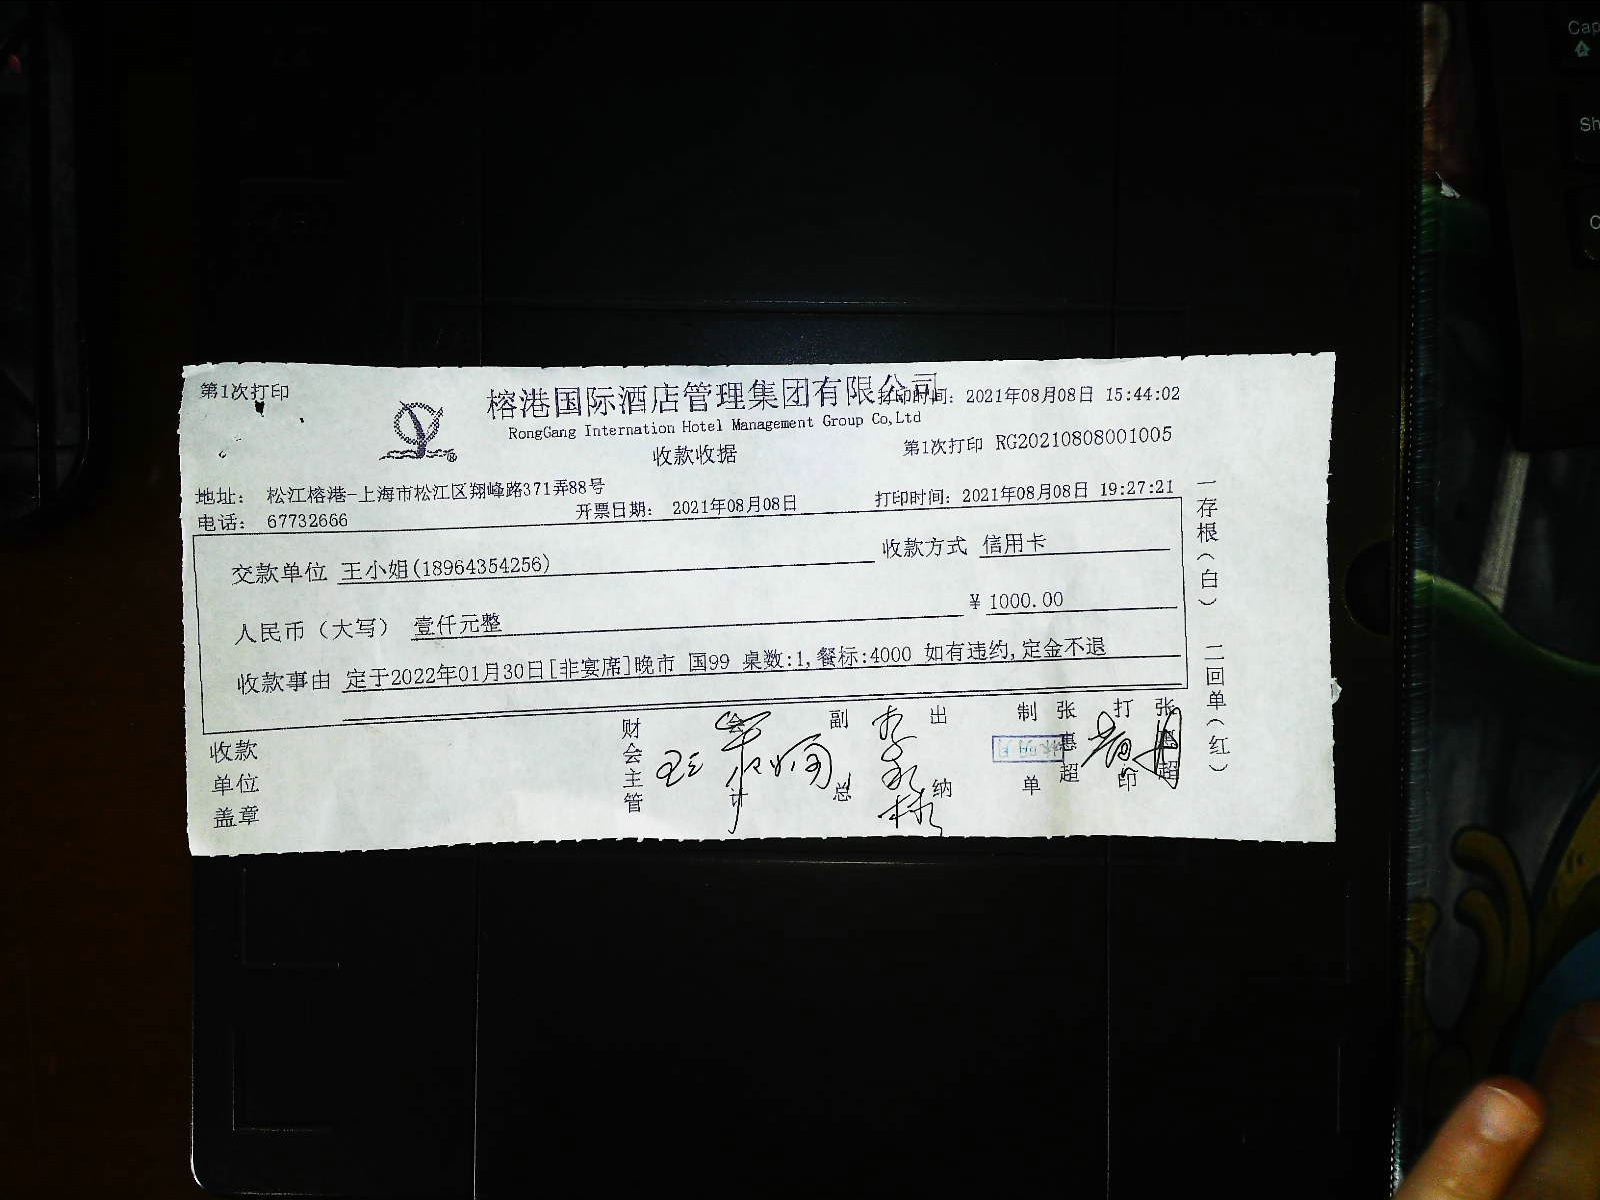 第1次打印
榕港国际酒店管理集团有限公司
打印时间: 2021年08月08日 15:44:02
RongGang Internation Hotel Management Group Co,Ltd
收款收据
第1次打印 RG20210808001005
地址: 松江榕港-上海市松江区翔峰路371弄88号
电话: 67732666
开票日期: 2021年08月08日
打印时间: 2021年08月08日 19:27:21
交款单位 王小姐(18964354256)
收款方式 信用卡
人民币（大写） 壹仟元整
¥ 1000.00
收款事由 定于2022年01月30日[非宴席]晚市 国99 桌数:1,餐标:4000 如有违约,定金不退
收款
单位
盖章
财会主管
会计
副总
出纳
制单
张惠超
打印
张惠超
一存根（白）
二回单（红）
Cap
Sh